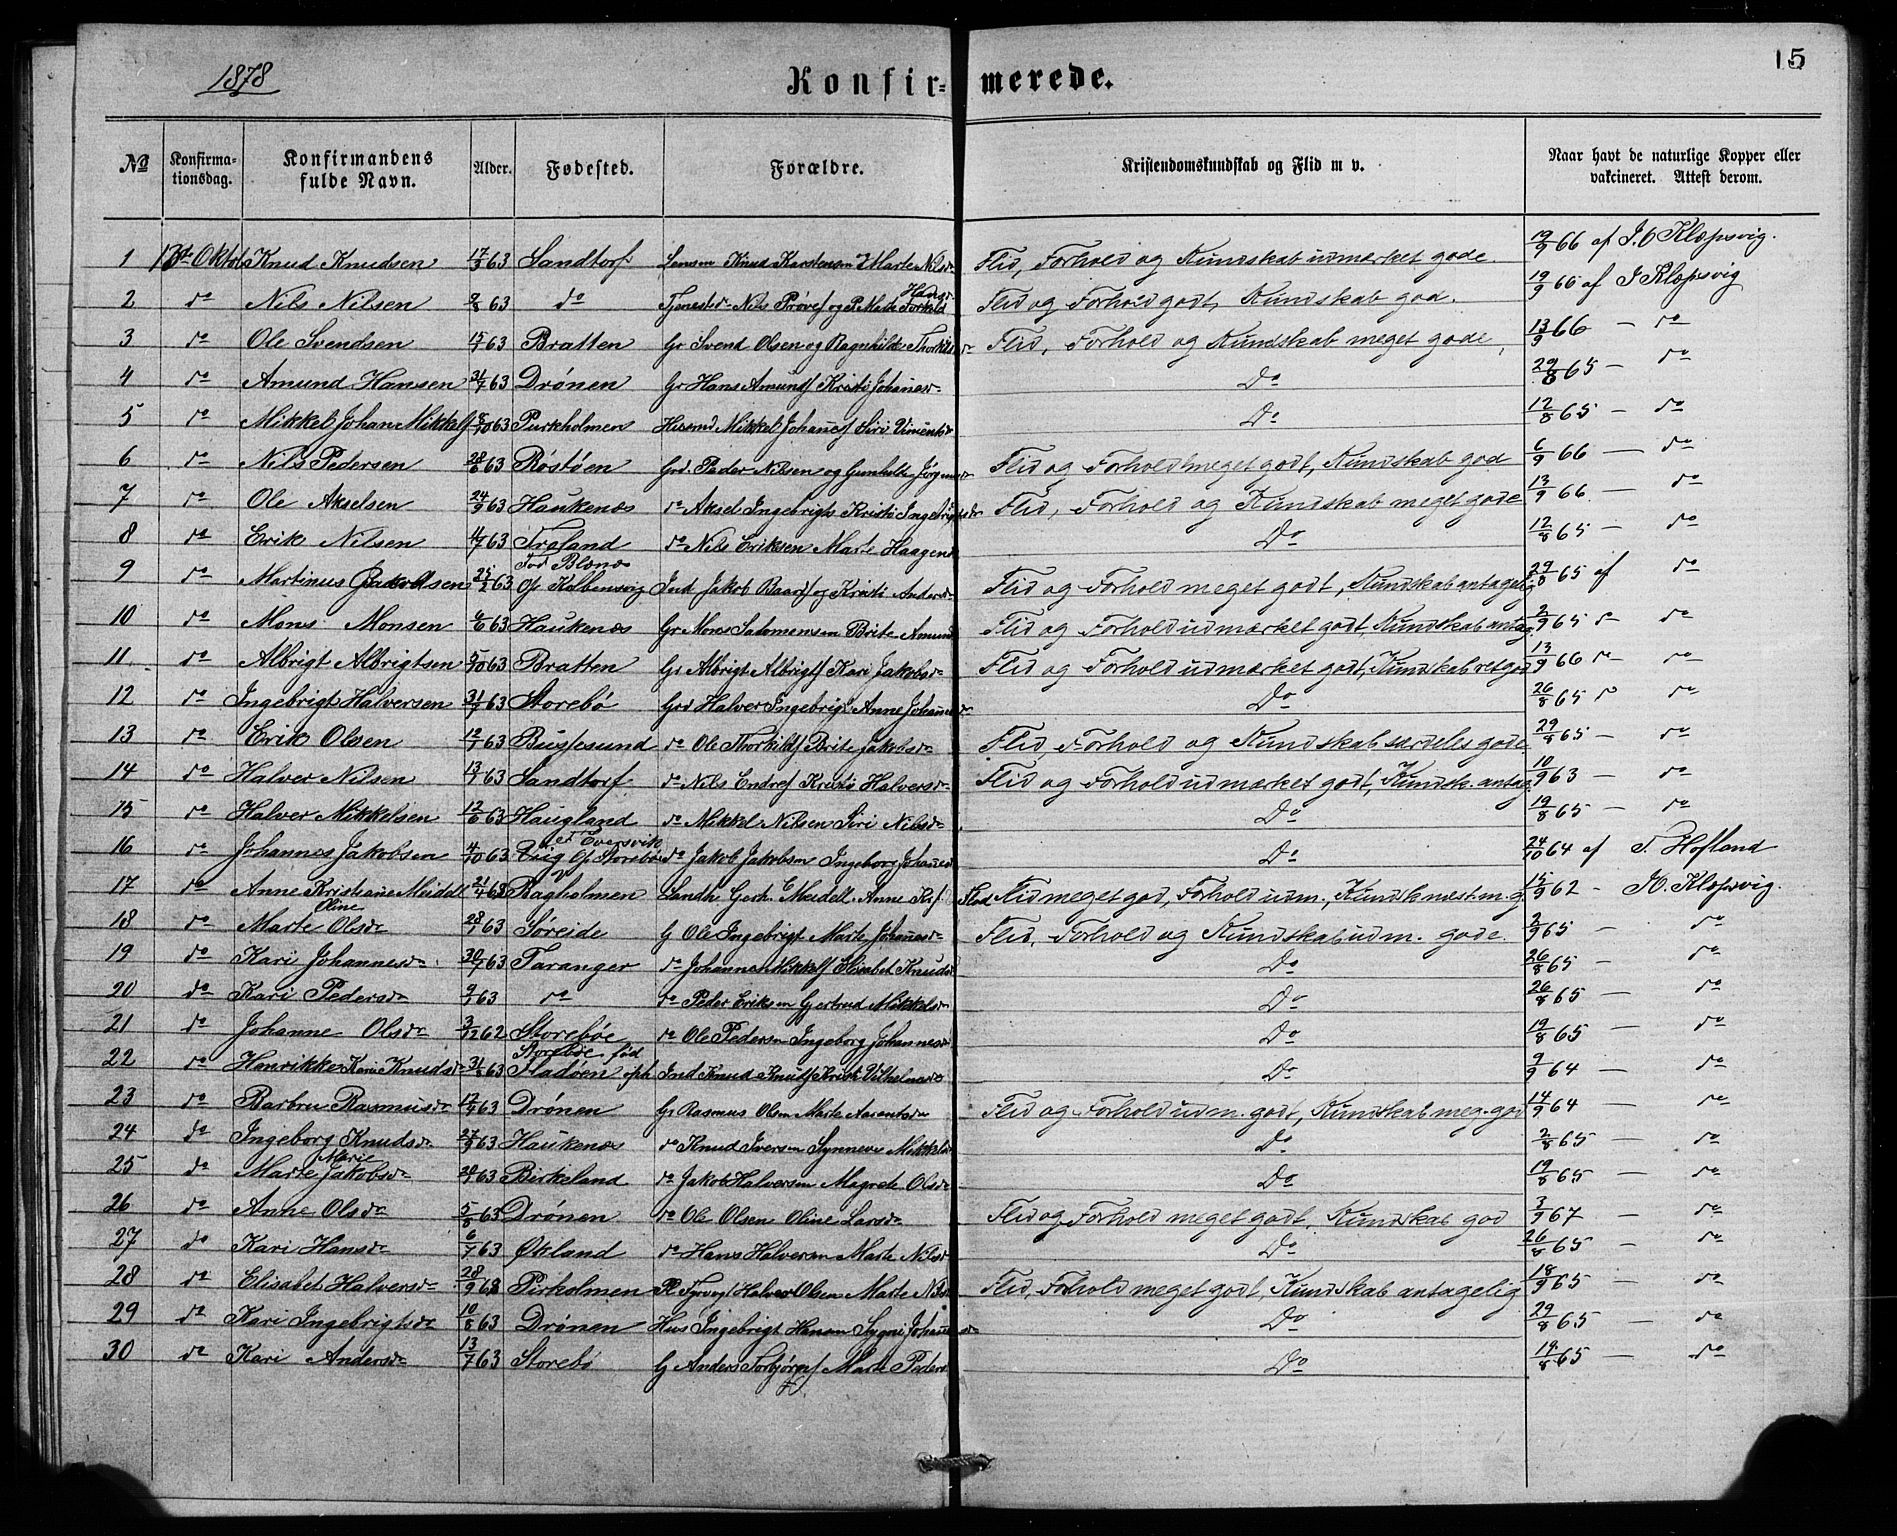 1878
Konfir- merede.
15
No Konfirma-tionsdag. Konfirmandens fulde Navn. Alder. Fødested. Forældre. Kristendomskundskab og Flid m v. Naar havt de naturlige Kopper eller vakcineret. Attest derom.
1 13de Oktob Knud Knudsen 17/9 63 Sandtorf Knud Karstensen Marte Nilsdr Flid, Forhold og Kundskab udmærket gode 19/9 66 af J. O Klepsvig.
2 do Nils Nilsen 9/8 63 do Nils Flid og Forhold godt, Kundskab god. 19/9 66 af J Klepsvig
3 do Ole Svendsen 15/7 63 Bratten Gr Svend Olsen og Ragnhilde Thorkilds Flid, Forhold og Kundskab meget gode, 13/9 66 — do
4 do Amund Hansen 31/7 63 Drönen Gr Hans Amunds Kristi Johanesdr Do 29/8 65 — do
5 do Mikkel Johan Mikkels 8/10 63 Purkholmen Husmd Mikkel Johanes Siri Do 12/8 65 — do
6 do Nils Pedersen 28/6 63 Röstöen Grd. Peder Nilsen og Gunhilde Flid og Forhold meget godt, Kundskab god 6/9 66 — do
7 do Ole Akselsen 24/9 63 Haukenæs do Aksel Ingebrigts Kristi Ingebrigtsdr Flid, Forhold og Kundskab meget gode 13/9 66 — do
8 do Erik Nilsen 63 do Nils Eriksen Marte Haagensd Do 12/8 65 — do
9 do Martinus Jakobsen 25/2 63 Fød Blænæs Op Kolbensvig Ind Jakob Baars og Kristi Andersdr Flid og Forhold meget godt, Kundskab antagelig 29/8 65 af do
10 do Mons Monsen 6/6 63 Haukenæs Gr Mons Salomonsen Brite Amund Flid og Forhold udmærket godt, Kundskab antag 2/9 65 do
11. do Albrigt Albrigtsen 5/10 63 Bratten Gr Albrigt Albrigts Kari Jakobsdr Flid og Forhold udmærket godt, Kundskab ret god 13/9 66 do
12 do Ingebrigt Halversen 31/7 63 Storebö Grd Halver Ingebrigt Anne Johanes Do 26/8 65 do
13 do Erik Olsen 12/7 63 Bustesund do Ole Thorkilds Brite Jakobsdr Flid, Forhold og Kundskab særdeles gode 29/8 65 — do
14 do Halver Nilsen 13/7 63 Sandtorf do Nils Endres Kristi Halversdr Flid og Forhold udmærket godt, Kundsk. antag 10/9 63 — do
15 do Halver Mikkelsen 12/6 63 Haugland do Mikkel Nilsen Siri Nilsdr Do 19/8 65 — do
16 do Johannes Jakobsen 4/10 63 Op Storebö do Jakob Jakobsen Ingeborg Johanes Do 24/10 64 af T. Hofland
17 do Anne Kristiane Meidell 21/4 63 Bagholmen Landh Gerh. E Meidell. Anne Flid meget god, Forhold udm., Kundsk næst. m. g. 15/9 62 - Klepsvig.
18 do Marte Oline Olsdr 28/1 63 Søreide G Ole Ingebrigt Marte Johanesdr Flid, Forhold og Kundskab udm. gode. 2/9 65 - do
19 do Kari Johannesdr 30/7 63 Taranger do Johannes Mikkels Elisabet Knudsd Do 26/8 65 — do
20 do Kari Pedersdr 9/1 63 do do Peder Eriksen Gjertrud Mikkelsdr Do 26/8 65 — do
21 do Johanne Olsdr 3/12 62 Storebøe do Ole Pedersen Ingeborg Johannesdr Do 19/8 65 — do
22 do Henrikke Karine Knudsdr 31/8 63 Storebøe fød Fladöen oph Ind Knud Knuds Kristi Vilhelmsdr Do 9/9 64 — do
23 do Barbru Rasmusdr 12/4 63 Drönen Gr Rasmus Olsen Marte Flid og Forhold udm. godt, Kundskab meg. god 14/9 64 — do
24 do Ingeborg Knudsdr 27/9 63 Haukenæs do Knud Iversen Synneve Mikkelsd Do 2/8 65 — do
25 do Marte Marie Jakobsdr 63 Birkeland do Jakob Halversen Magrete Olsdr Do 19/8 65 — do
26 do Anne Olsdr 5/8 63 Drönen do Ole Olsen Oline Larsdr Flid og Forhold meget godt, Kundskab god 3/9 67 - do
27 do Kari Hansdr 6/7 63 Økland do Hans Halversen Marte Nilsd Do 26/8 65 — do
28 do Elisabet Halversdr 28/9 63 Pirholmen Halver Olsen Marte Nils Flid, Forhold meget godt, Kundskab antagelig 18/9 65 — do
29 do Kari Ingebrigtsdr 10/8 63 Drönen Hus Ingebrigt Hansen Johannesdr Do 29/8 65 — do
30 do Kari Andersdr 13/7 63 Storebö G Anders Torbjørns Marte Peders Do 19/8 65 — do